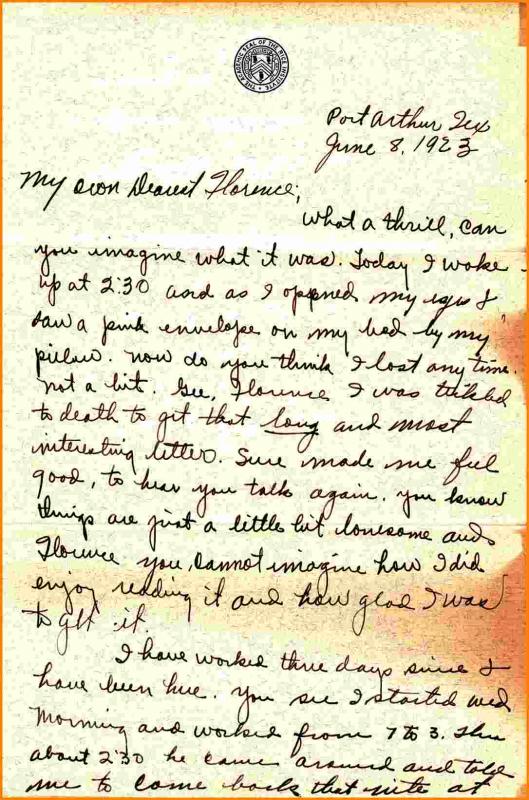 THE ACADEMIC SEAL OF THE RICE INSTITUTE
Port Arthur Tex
June 8, 1923
My own Dearest Florence;
What a thrill, can
you imagine what it was. Today I woke
up at 2:30 and as I oppened my eyes I
saw a pink envelope on my bed by my
pillow. Now do you think I lost any time.
Not a bit. Gee, Florence I was tickled
to death to get that long and most
interesting letter. Sure made me feel
good, to hear you talk again. You know
things are just a little bit lonesome and
Florence you cannot imagine how I did
enjoy reading it and how glad I was
to get it.
I have worked three days since I
have been here. You see I started Wed
Morning and worked from 7 to 3. Then
about 2:30 he came around and told
me to come back that nite at